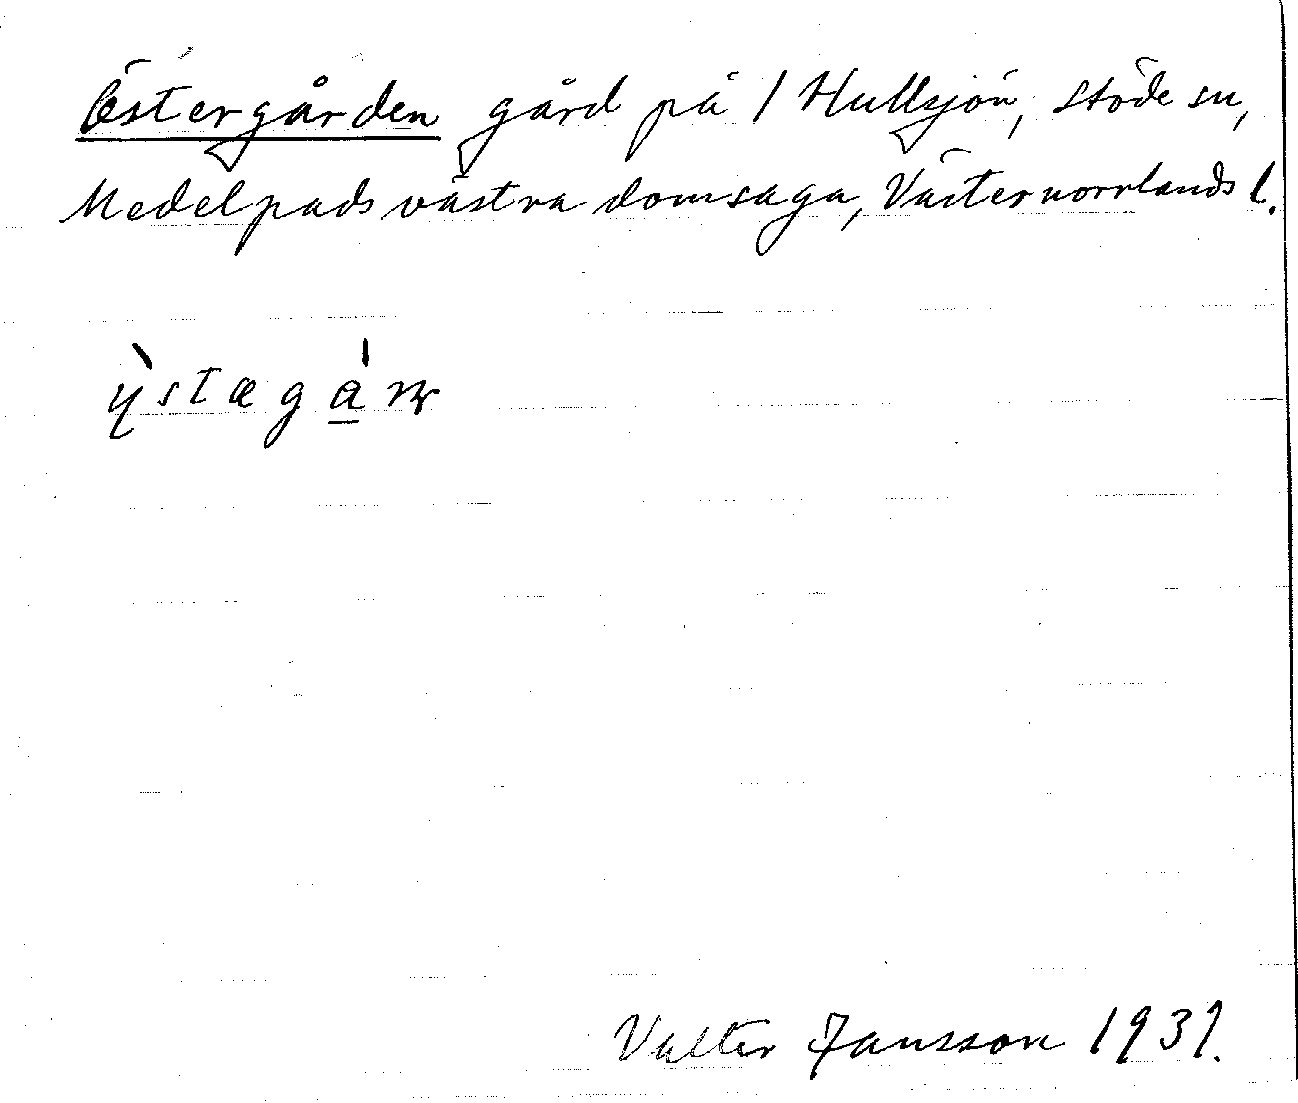 Östergården gård på 1 Hullsjön, Stöde sn,
Medelpads västra domsaga, Västernorrlands l.
Valter Jansson 1931.